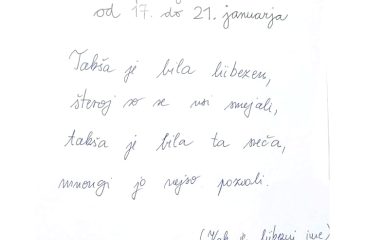 od 17. do 21. januarja
Takša je bila lübezen,
šteroj so se vsi smejali,
takša je bila ta sreča,
mnougi jo nejso poznali.